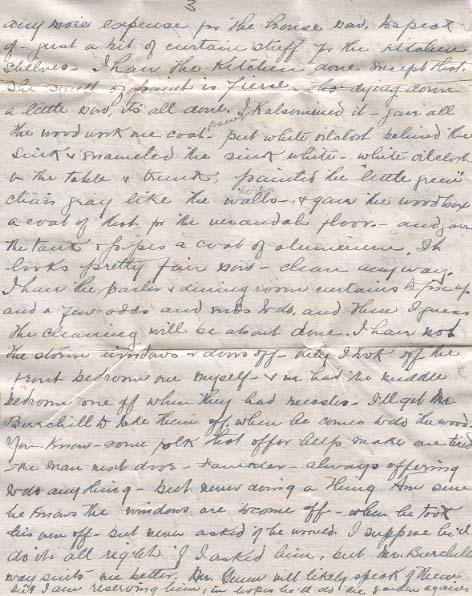 3
any more expense for the house now, to speak
of - just a bit of curtain stuff for the kitchen
shelves - I have the kitchen done except that.
The smell of paint is fierce - tho dying down
a little now, it's all done. I Kalsomined it - gave all
the wood work one coat - put white oilcloth behind the
sink & enameled the sink white - white oilcloth
on the table & trunk, painted the little green
chair gray like the walls - & gave the wood box
a coat of that for the verandah floor - and gave
the tank & pipes a coat of aluminum. It
looks pretty fair now - clean anyway.
I have the parlor & dining room curtains to fix up
and a few odds and ends to do, and then I guess
the cleaning will be about done. I have not
the storm windows & doors off - only I took off the
front bedroom one myself - & we had the middle
bedroom one off when they had measles - I'll get Mr
Burchill to take them off, when he comes to do the wood.
You know - some folk that offer help make me tired
- the man next door - - always offering
to do anything - but never doing a thing. Am sure
he knows the windows are to come off - when he took
his own off - but never asked if he would. I suppose he'd
do it all right if I asked him, but Mr. Burchill
way suits me better. Mr. will likely speak of them
but I am reserving him, in hopes he'd do the garden again.